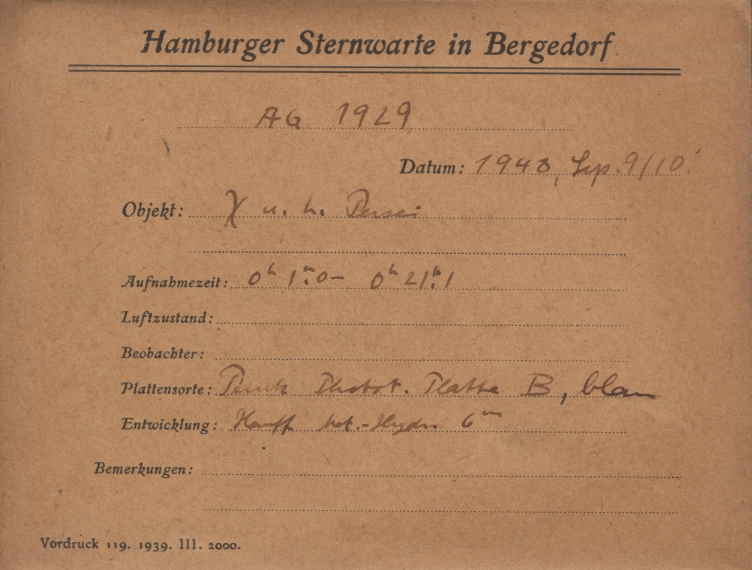 Hamburger Sternwarte in Bergedorf
AG 1929
Datum: 1943, Sep. 9/10.
Objekt: χ u. h. Persei
Aufnahmezeit: 0ʰ 1ᵐ.0 – 0ʰ 21ᵐ.1
Luftzustand:
Beobachter:
Plattensorte: Photot. Platte B, blau
Entwicklung: Hauff Met.-Hydr. 6ᵐ
Bemerkungen:
Vordruck 119. 1939. III. 2000.